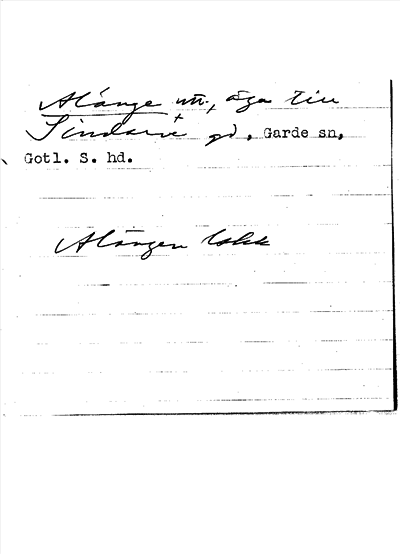 Alänge m., äga till
Sindarve gd, Garde sn,
Gotl. S. hd.
Alängen lokk